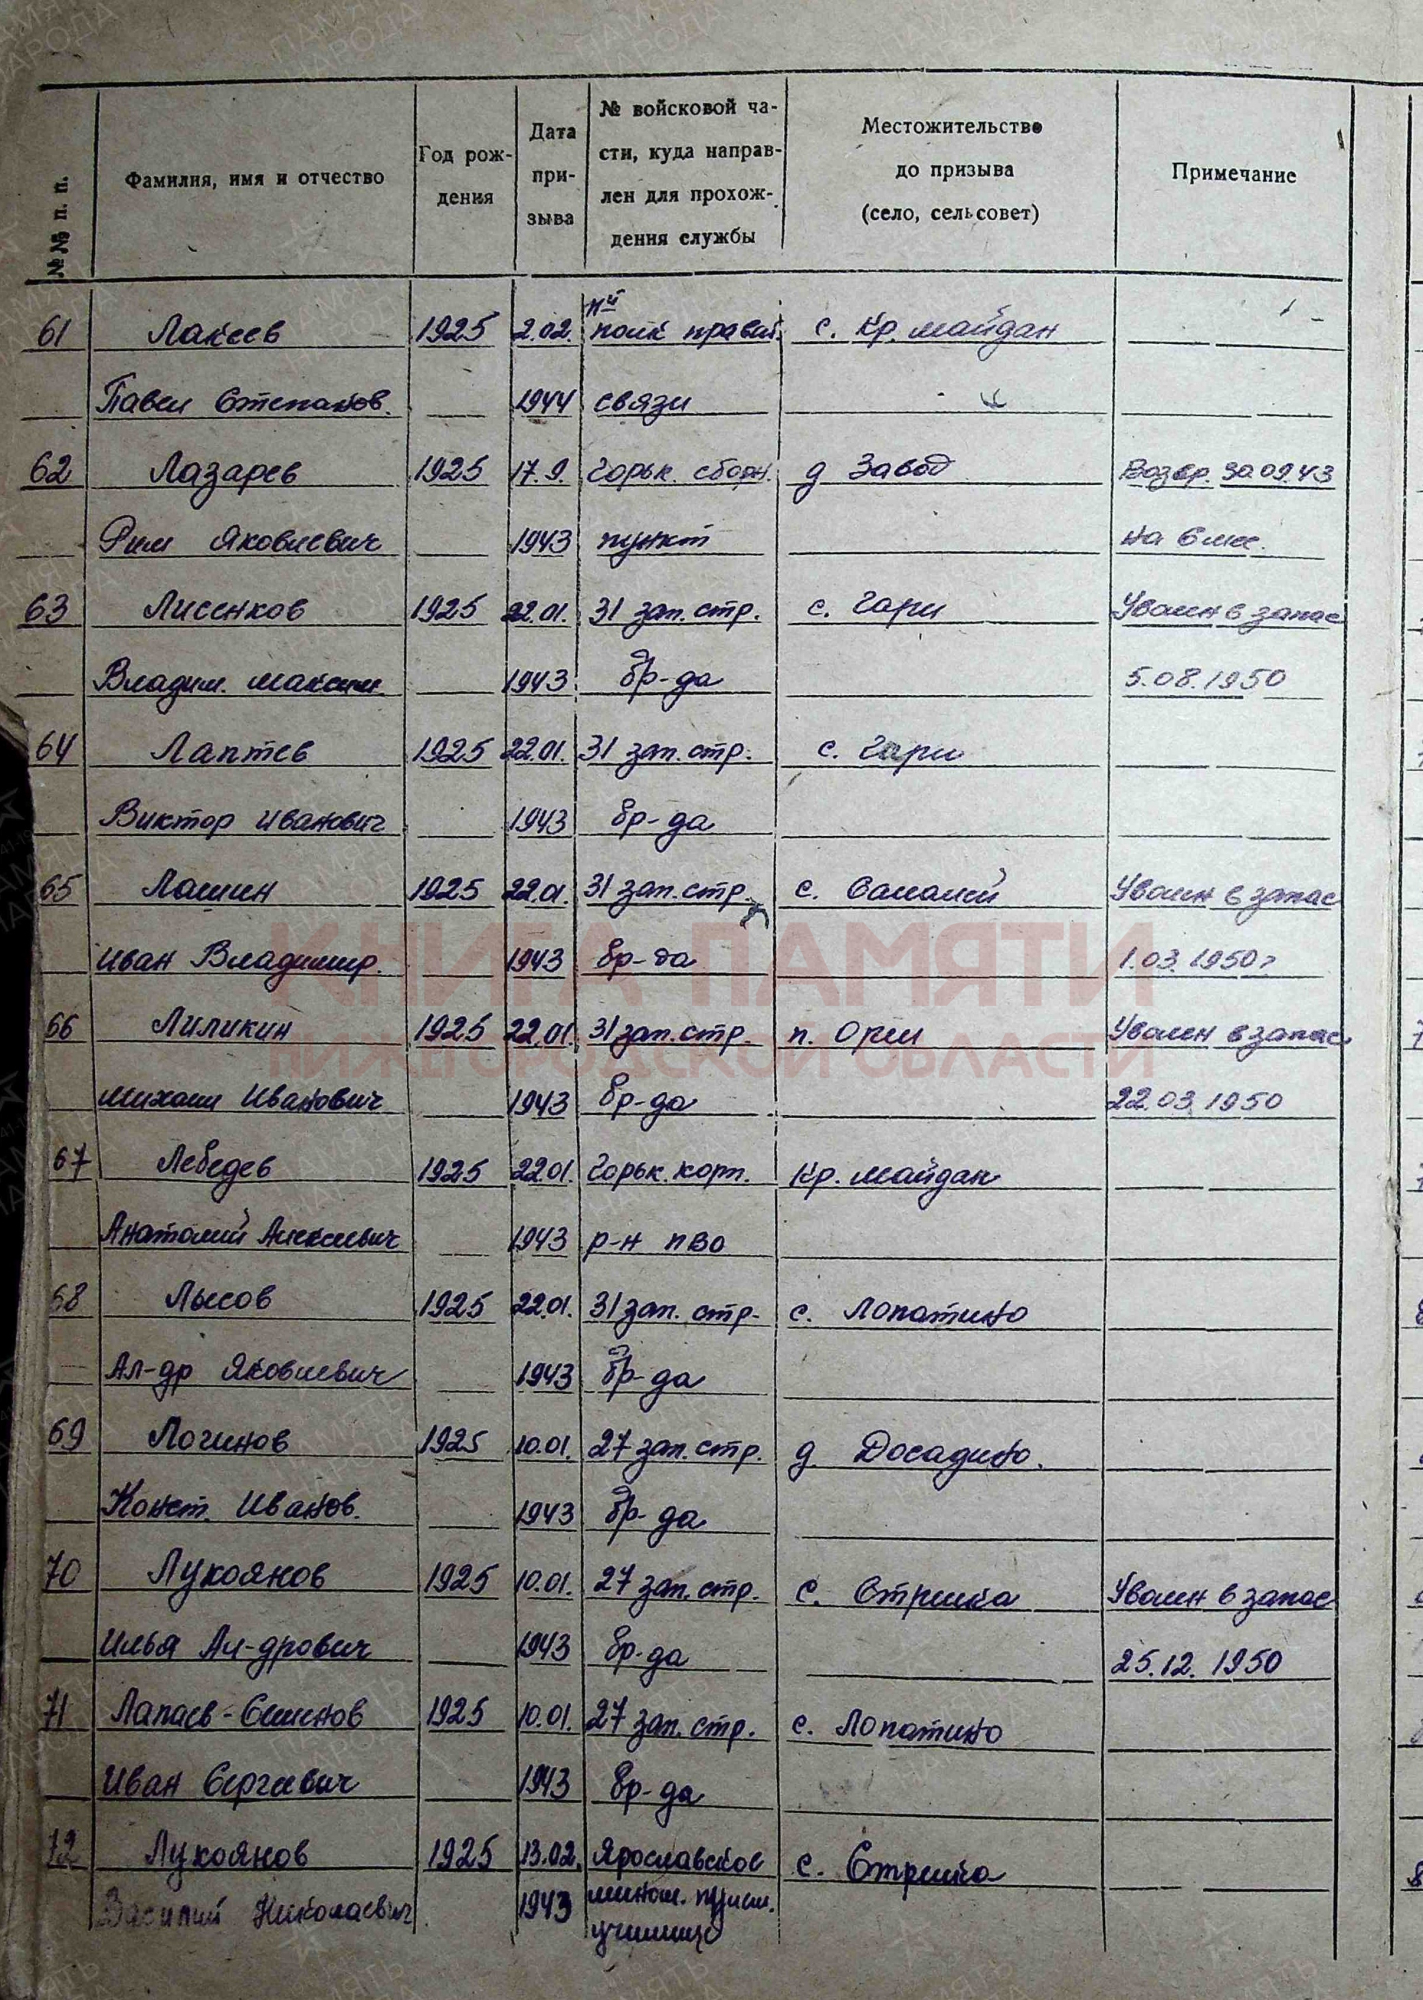 №№ п. п. Фамилия, имя и отчество Год рождения Дата призыва № войсковой части, куда направлен для прохождения службы Местожительство до призыва (село, сельсовет) Примечание
61 Лакеев 1925 2.02. полк правит. с. Кр. майдан
Павел Степанов. 1944 связи
62 Лазарев 1925 17.9. Горьк. сборн. д Завод Возвр. 30.09.43
Рим Яковлевич 1943 пункт на 6 мес.
63 Лисенков 1925 22.01. 31 зап. стр. с. Гари Уволен в запас
Владим. Максим. 1943 бр-да 5.08.1950
64 Лаптев 1925 22.01. 31 зап. стр. с. Гари
Виктор Иванович 1943 бр-да
65 Лашин 1925 22.01. 31 зап. стр. с. Уволен в запас
Иван Владимир. 1943 бр-да 1.03.1950г
КНИГА ПАМЯТИ
66 Лиликин 1925 22.01 31 зап. стр. п. Орли Уволен в запас
НИЖЕГОРОДСКОЙ ОБЛАСТИ
Михаил Иванович 1943 бр-да 22.03.1950
67 Лебедев 1925 22.01. Горьк. корп. Кр. майдан
Анатолий Алексеевич 1943 р-н ПВО
68 Лысов 1925 22.01. 31 зап. стр. с. Лопатино
Ал-др Яковлевич 1943 бр-да
69 Логинов 1925 10.01. 27 зап. стр. д. Досадино.
Конст. Иванов. 1943 бр-да
70 Лукоянов 1925 10.01. 27 зап. стр. с. Стрелка Уволен в запас
Илья Ал-дрович 1943 бр-да 25.12.1950
71 Лапаев-Семенов 1925 10.01. 27 зап. стр. с. Лопатино
Иван Сергеевич 1943 бр-да
72 Лукоянов 1925 13.02. Ярославское с. Стрелка
Василий Николаевич 1943 мином. пулем.
училище